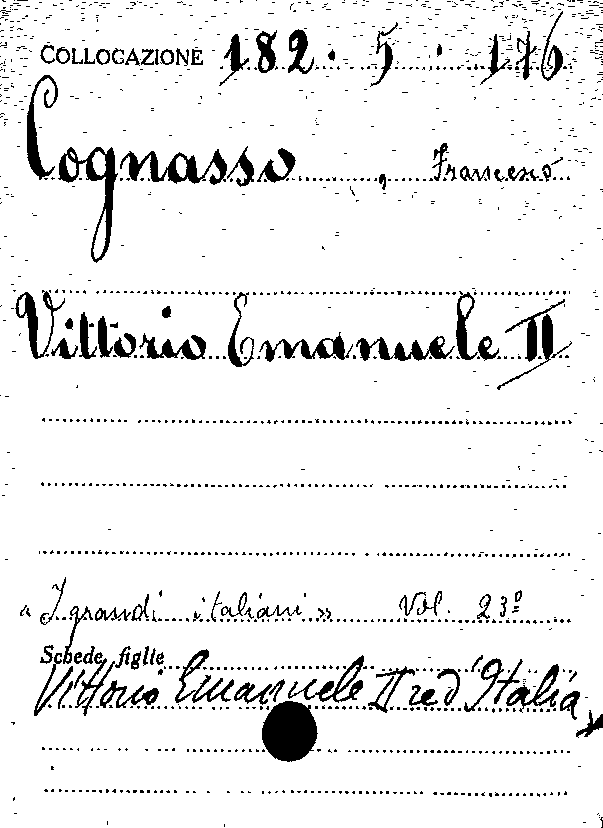 COLLOCAZIONE 182. 5. 176
Cognasso, Francesco
Vittorio Emanuele II
« I grandi italiani » Vol. 23º
Schede figlie
Vittorio Emanuele II re d'Italia